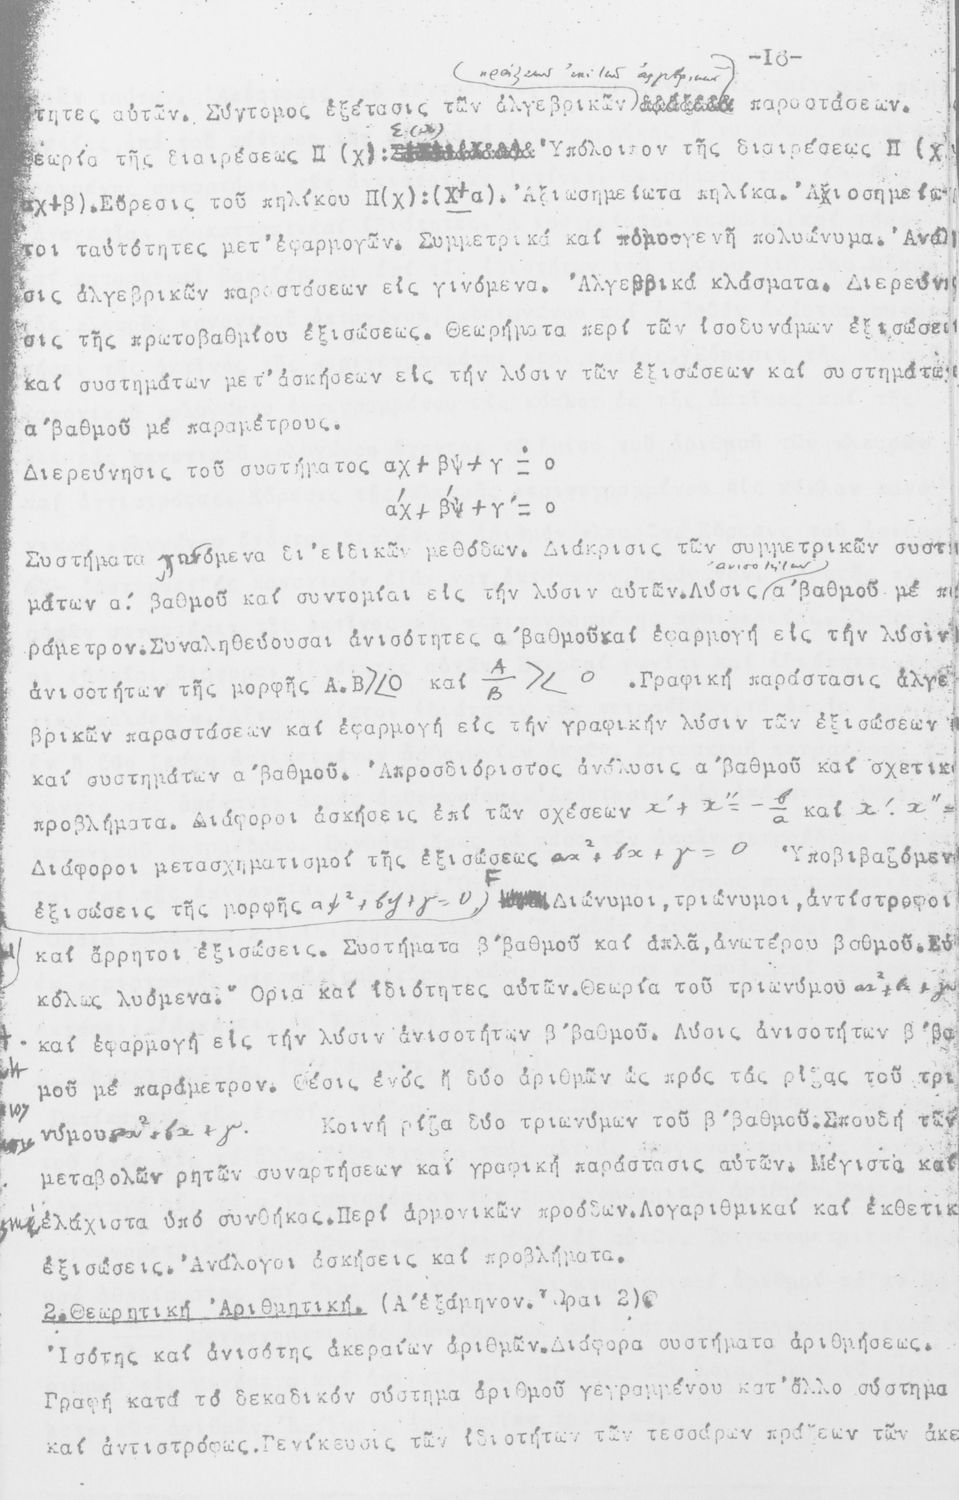 -18-
πράξεων ἐπί τῶν ἀλγεβρικῶν
τητες αὐτῶν. Σύντομος ἐξέτασις τῶν ἀλγεβρικῶν παραστάσεων.
εωρία τῆς διαιρέσεως Π (χ): Σ(χ) Ὑπόλοιπον τῆς διαιρέσεως Π (χ
αχ+β).Εὕρεσις τοῦ πηλίκου Π(χ):(Χ+α). Ἀξιωσημείωτα πηλίκα. Ἀξιοσημείω-
τοι ταὐτότητες μετ'ἐφαρμογῶν. Συμμετρικά καί ὁμογενῆ πολυώνυμα. Ἀνάλ
σις ἀλγεβρικῶν παραστάσεων είς γινόμενα. Ἀλγεββρικά κλάσματα. Διερεύνη
σις τῆς πρωτοβαθμίου ἐξισώσεως. Θεωρήματα περί τῶν ἰσοδυνάμων ἐξισώσεω
καί συστημάτων μετ'ἀσκήσεων είς τήν λύσιν τῶν ἐξισώσεων καί συστημάτω
α'βαθμοῦ μέ παραμέτρους.
Διερεύνησις τοῦ συστήματος αχ+ βψ+ γ = ο
α'χ+ β'ψ + γ'= ο
Συστήματα γινόμενα δι'είδικῶν μεθόδων. Διάκρισις τῶν συμμετρικῶν συστη
ἀνισοτήτων
μάτων α' βαθμοῦ καί συντομίαι είς τήν λύσιν αὐτῶν.Λύσις α'βαθμοῦ μέ πα
ράμετρον.Συναληθεύουσαι ἀνισότητες α'βαθμοῦκαί ἐφαρμογή είς τήν λύσιν
ἀνισοτήτων τῆς μορφῆς Α.Β><0 καί Α/Β >< 0 .Γραφική παράστασις ἀλγε-
βρικῶν παραστάσεων καί ἐφαρμογή είς τήν γραφικήν λύσιν τῶν ἐξισώσεων
καί συστημάτων α'βαθμοῦ. Ἀπροσδιόριστος ἀνάλυσις α'βαθμοῦ καί σχετικ
προβλήματα. Διάφοροι ἀσκήσεις ἐπί τῶν σχέσεων x' + x'' = - β/α καί x'. x'' =
Διάφοροι μετασχηματισμοί τῆς ἐξισώσεως αx² + βx + γ = 0 Ὑποβιβαζόμεν
ἐξισώσεις τῆς μορφῆς αy² + βy + γ = 0, F Διώνυμοι,τριώνυμοι,ἀντίστροφοι
καί ἄρρητοι ἐξισώσεις. Συστήματα β'βαθμοῦ καί ἁπλᾶ,ἀνωτέρου βαθμοῦ.Εὐ
κόλως λυόμενα." Ορια καί ἰδιότητες αὐτῶν.Θεωρία τοῦ τριωνύμου αx²+βx+γ
καί ἐφαρμογή είς τήν λύσιν ἀνισοτήτων β'βαθμοῦ. Λύσις ἀνισοτήτων β'βα
μοῦ μέ παράμετρον. Θέσις ἑνός ἤ δύο ἀριθμῶν ὡς πρός τάς ρίζας τοῦ τρι
νύμου αx² + βx + γ. Κοινή ρίζα δύο τριωνύμων τοῦ β'βαθμοῦ.Σπουδή τῶν
μεταβολῶν ρητῶν συναρτήσεων καί γραφική παράστασις αὐτῶν. Μέγιστα καί
ἐλάχιστα ὑπό συνθήκας.Περί ἁρμονικῶν προόδων.Λογαριθμικαί καί ἐκθετικ
ἐξισώσεις. Ἀνάλογοι ἀσκήσεις καί προβλήματα.
2.Θεωρητική Ἀριθμητική. (Α'ἑξάμηνον. Ὧραι 2)
Ἰσότης καί ἀνισότης ἀκεραίων ἀριθμῶν.Διάφορα συστήματα ἀριθμήσεως.
Γραφή κατά τό δεκαδικόν σύστημα ἀριθμοῦ γεγραμμένου κατ'ἄλλο σύστημα
καί ἀντιστρόφως.Γενίκευσις τῶν ἰδιοτήτων τῶν τεσσάρων πράξεων τῶν ἀκε